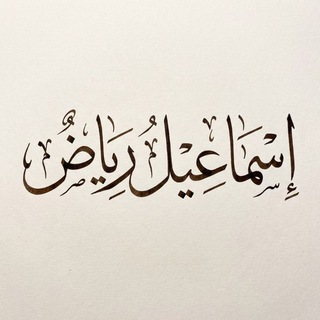 إِسْمَاعِيلُ رِيَاضٌ